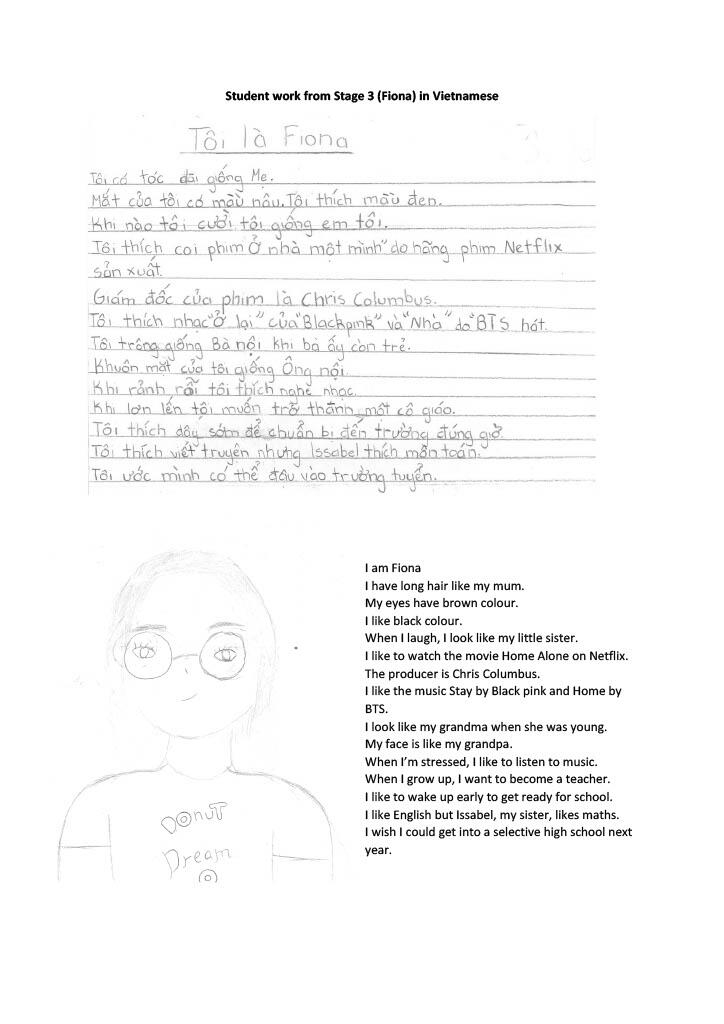 Student work from Stage 3 (Fiona) in Vietnamese
Tôi là Fiona
Tôi có tóc dài giống Mẹ.
Mắt của tôi có màu nâu. Tôi thích màu đen.
Khi nào tôi cười tôi giống em tôi.
Tôi thích coi phim "Ở nhà một mình" do hãng phim Netflix
sản xuất.
Giám đốc của phim là Chris Columbus.
Tôi thích nhạc "Ở lại" của "Blackpink" và "Nhà" do "BTS hát.
Tôi trông giống Bà nội khi bà ấy còn trẻ.
Khuôn mặt của tôi giống Ông nội.
Khi rảnh rỗi tôi thích nghe nhạc.
Khi lớn lên tôi muốn trở thành một cô giáo.
Tôi thích dậy sớm để chuẩn bị đến trường đúng giờ.
Tôi thích viết truyện nhưng Issabel thích môn toán.
Tôi ước mình có thể đậu vào trường tuyển.
I am Fiona
I have long hair like my mum.
My eyes have brown colour.
I like black colour.
When I laugh, I look like my little sister.
I like to watch the movie Home Alone on Netflix.
The producer is Chris Columbus.
I like the music Stay by Black pink and Home by
BTS.
I look like my grandma when she was young.
My face is like my grandpa.
When I'm stressed, I like to listen to music.
When I grow up, I want to become a teacher.
I like to wake up early to get ready for school.
I like English but Issabel, my sister, likes maths.
I wish I could get into a selective high school next
year.
DONUT
Dream